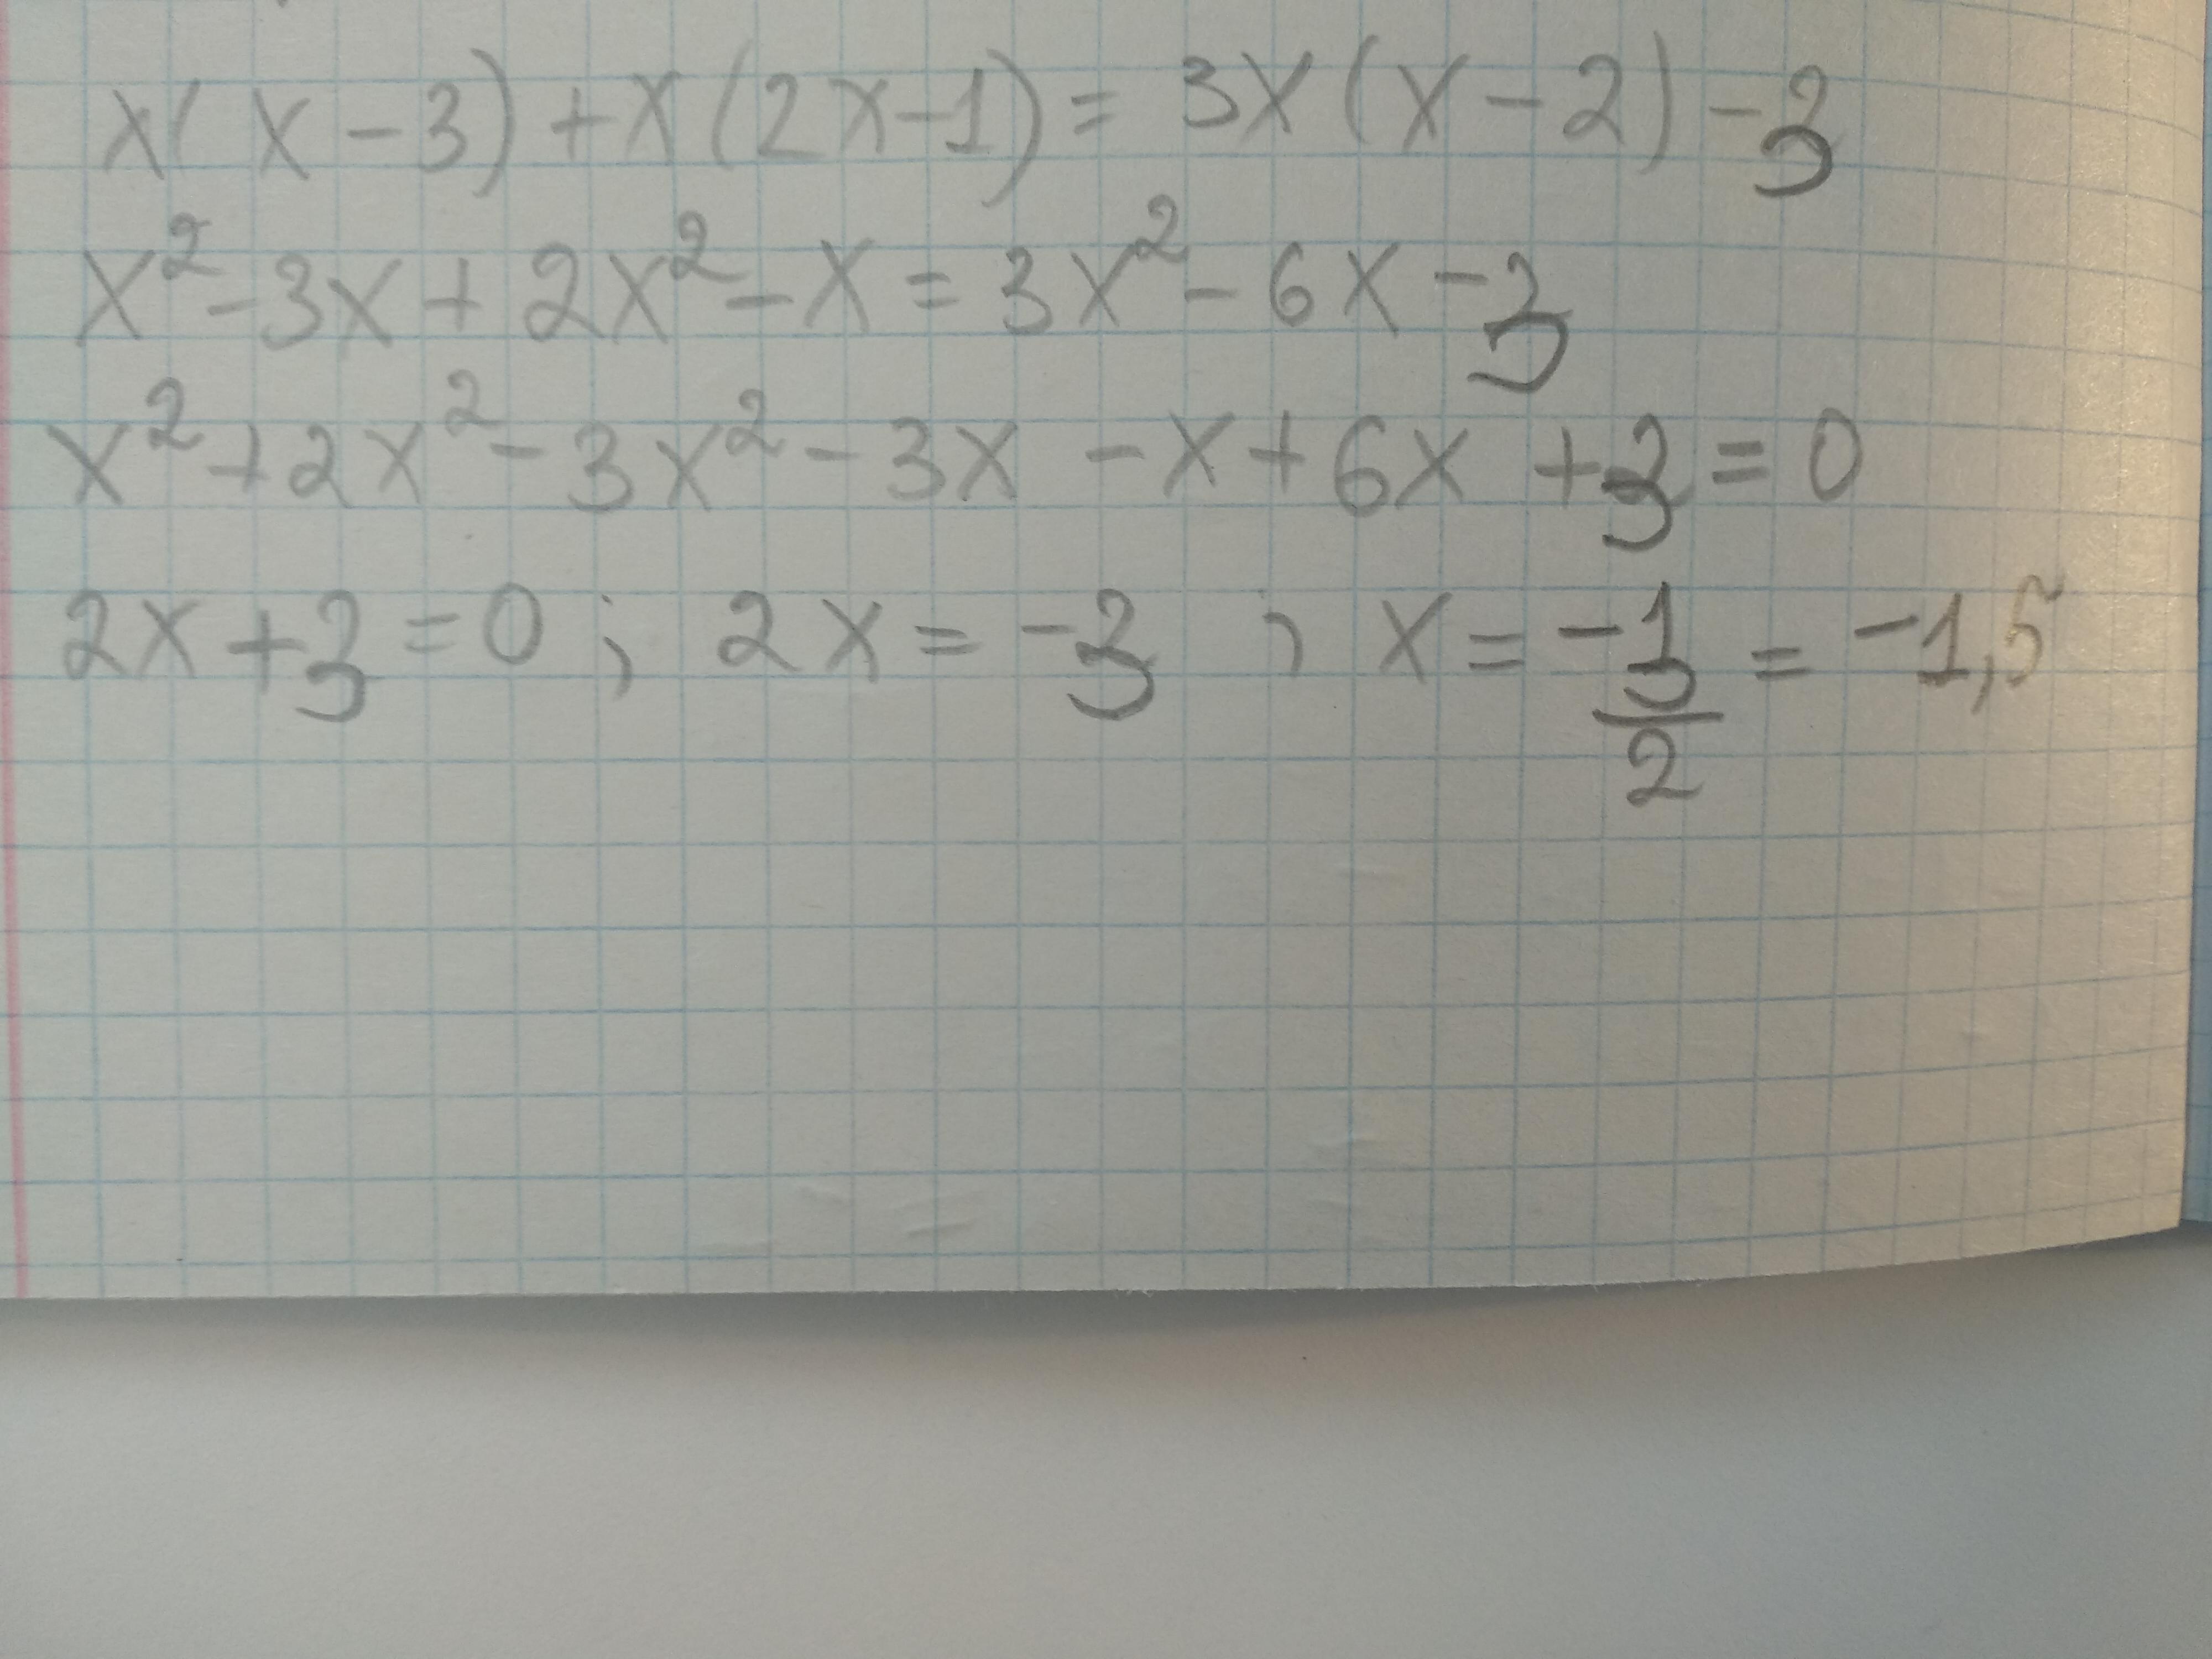 x(x-3)+x(2x-1)=3x(x-2)-3
x²-3x+2x²-x=3x²-6x-3
x²+2x²-3x²-3x-x+6x+3=0
2x+3=0; 2x=-3, x=-3/2=-1,5